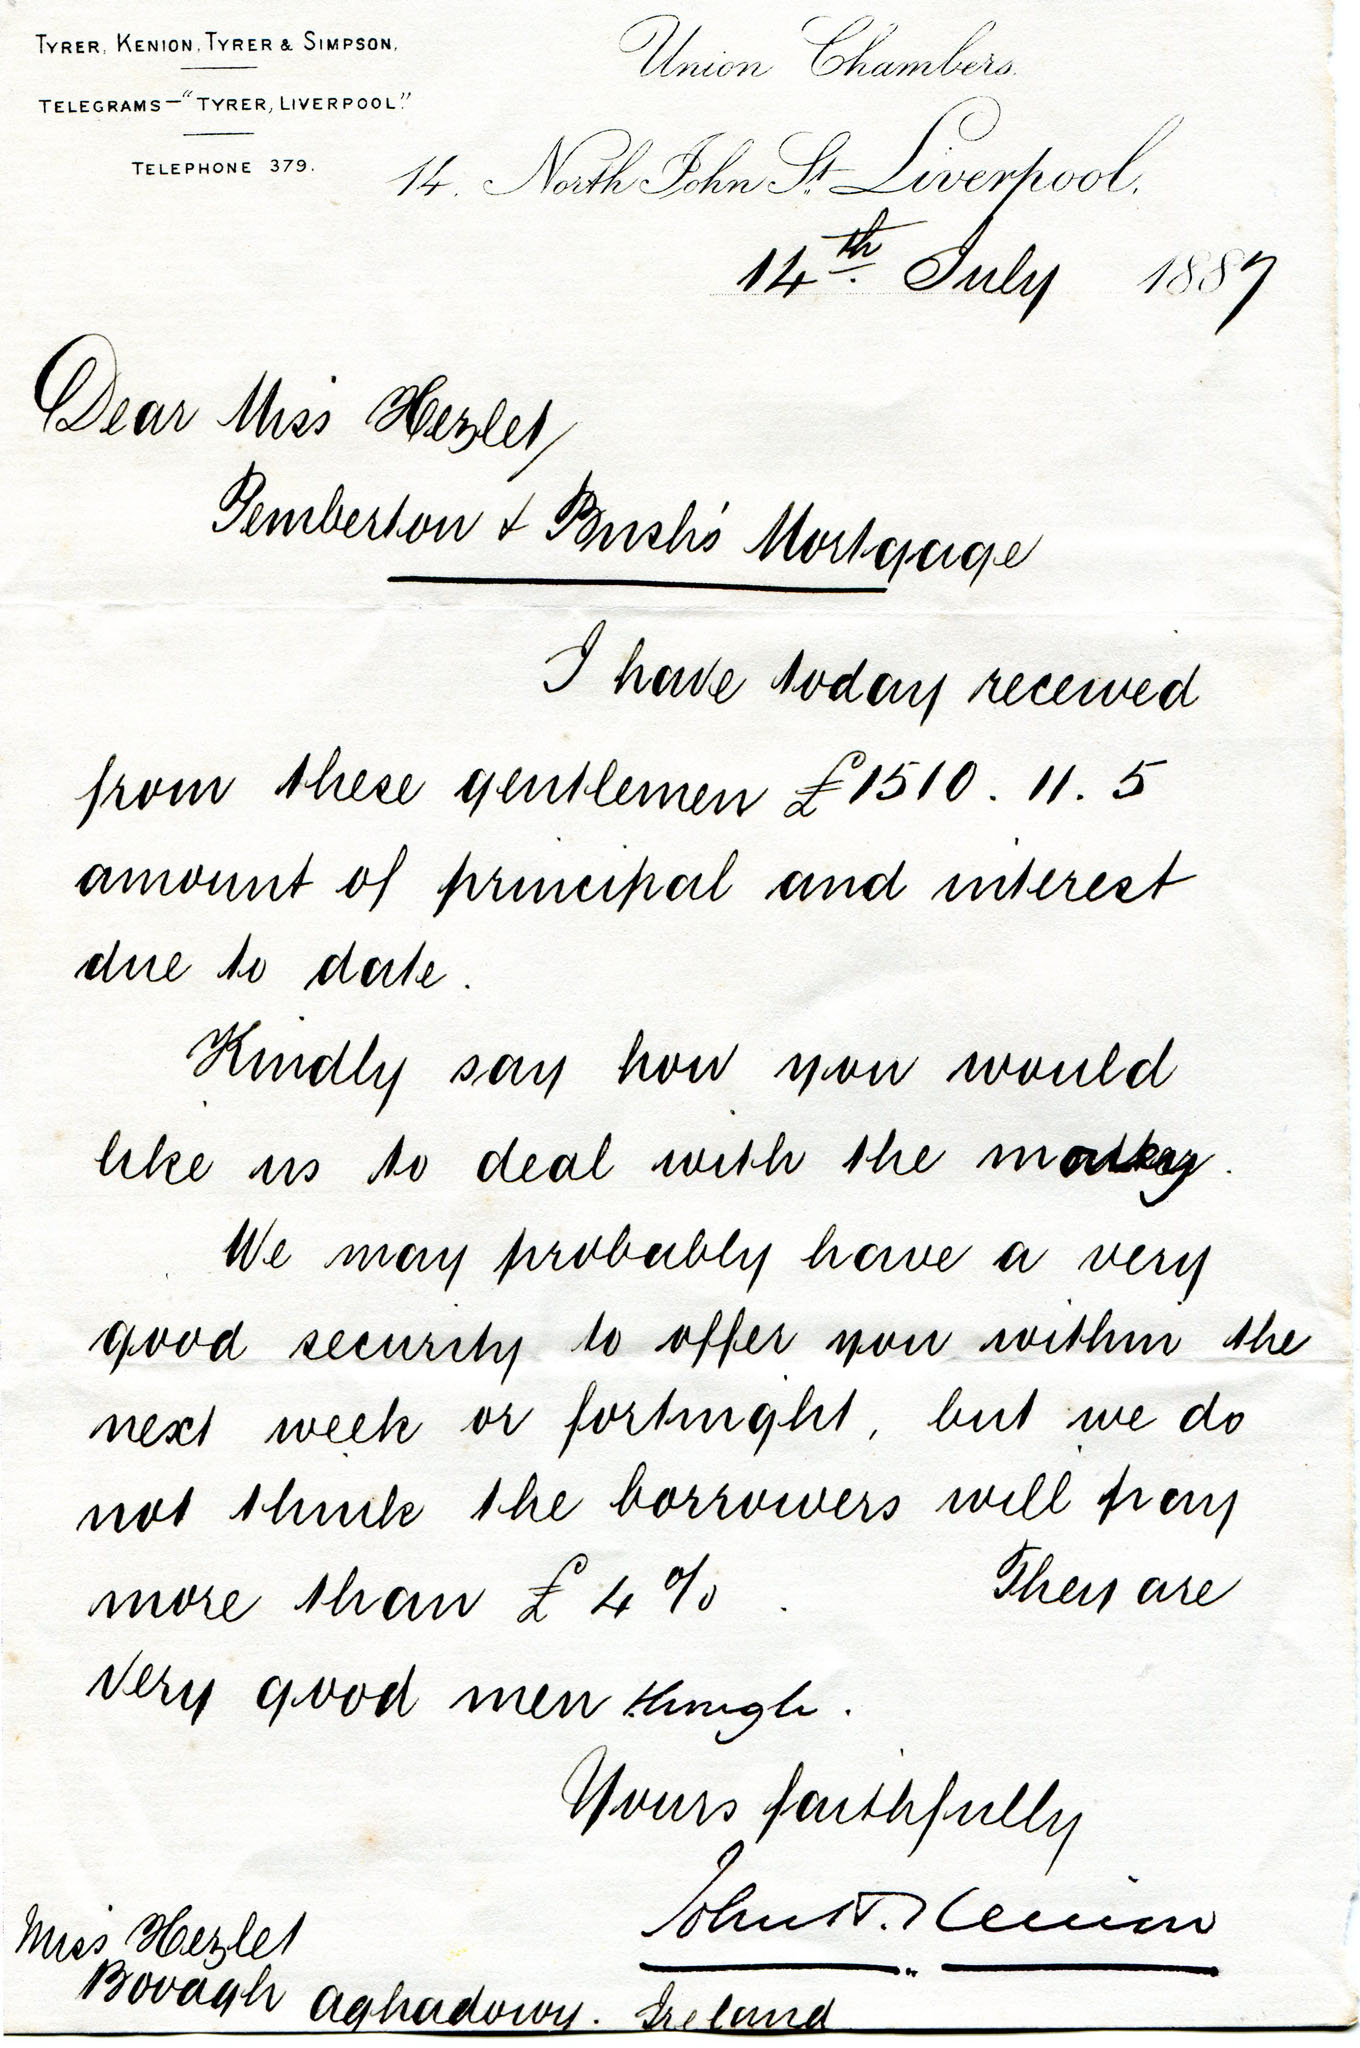 TYRER, KENION, TYRER & SIMPSON,
TELEGRAMS—"TYRER, LIVERPOOL."
TELEPHONE 379.
Union Chambers.
14. North John St. Liverpool.
14th July 1887
Dear Miss Hezlet,
Pemberton & Bush's Mortgage
I have today received
from these gentlemen £1510. 11. 5
amount of principal and interest
due to date.
Kindly say how you would
like us to deal with the
We may probably have a very
good security to offer you within the
next week or fortnight, but we do
not think the borrowers will pay
more than £4%. They are
very good men though.
Yours faithfully
John T. Kenion
Miss Hezlet
Bovagh Aghadowy. Ireland